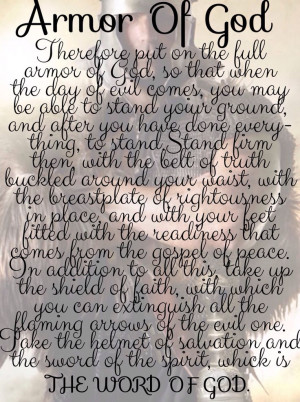 Armor Of God
Therefore put on the full
armor of God, so that when
the day of evil comes, you may
be able to stand your ground,
and after you have done every-
thing, to stand. Stand firm
then, with the belt of truth
buckled around your waist, with
the breastplate of rightousness
in place, and with your feet
fitted with the readiness that
comes from the gospel of peace.
In addition to all this, take up
the shield of faith, with which
you can extinguish all the
flaming arrows of the evil one.
Take the helmet of salvation and
the sword of the spirit, which is
THE WORD OF GOD.